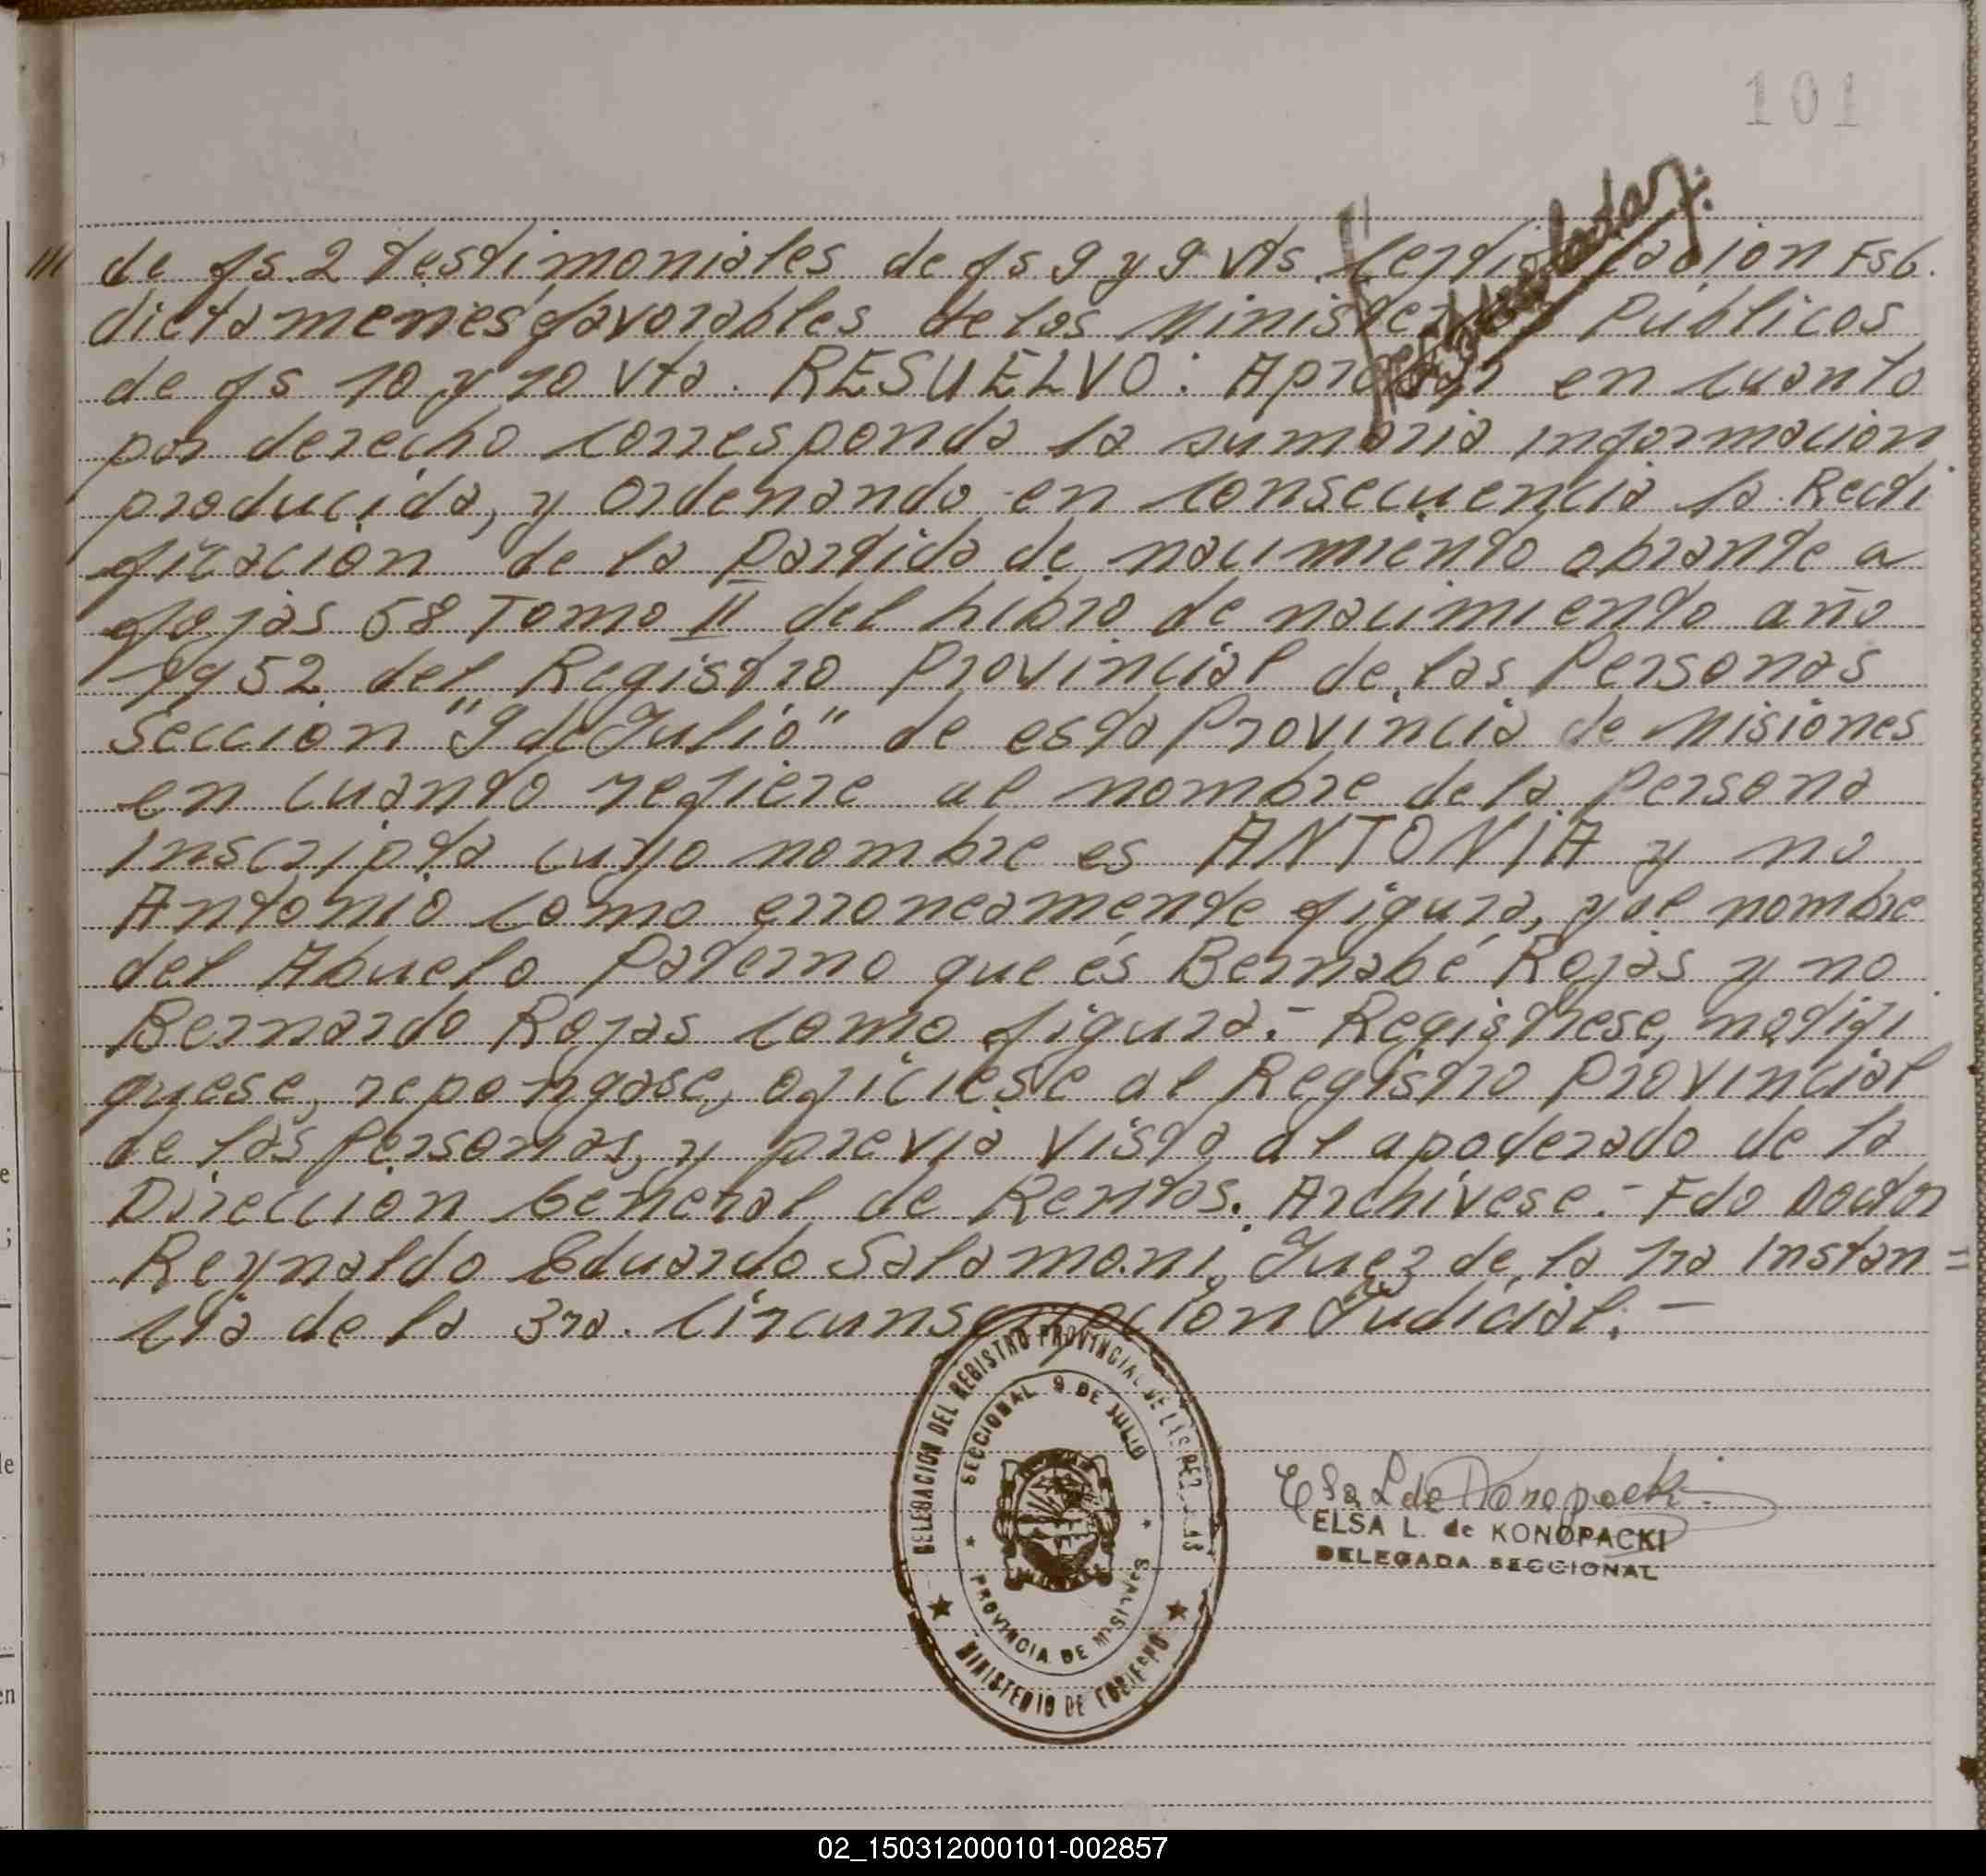 101
/// de fs 2 testimoniales de fs 9 y 9 vta Certificación Fs 6.
dictamenes favorables de los Ministerios Públicos
de fs 10 y 10 vta. RESUELVO: Aprobar en cuanto
por derecho corresponda la sumaria información
producida, y ordenando en consecuencia la Recti
ficación de la Partida de nacimiento obrante a
fojas 58 Tomo II del Libro de nacimiento año
1952 del Registro Provincial de las Personas
Sección "9 de Julio" de esta Provincia de Misiones
en cuanto refiere al nombre de la Persona
inscripta cuyo nombre es ANTONIA y no
Antonio como erroneamente figura, y al nombre
del Abuelo Paterno que és Bernabé Rojas y no
Bernardo Rojas como figura.- Registrese, notifi
quese, repongase, oficiese al Registro Provincial
de las Personas, y previa vista al apoderado de la
Dirección General de Rentas. Archívese.- Fdo Doctor
Reynaldo Eduardo Salamoni, Juez de la 1ra Instan=
cia de la 3ra. Circunscripción Judicial.-
DELEGACION DEL REGISTRO PROVINCIAL DE LAS PERSONAS
SECCIONAL 9 DE JULIO
PROVINCIA DE MISIONES
MINISTERIO DE GOBIERNO
Elsa L de Konopacki
ELSA L. de KONOPACKI
DELEGADA SECCIONAL
02_150312000101-002857